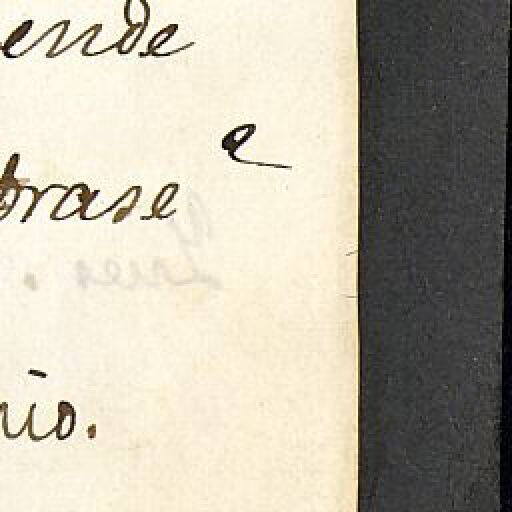 ende
e
brase
nio.